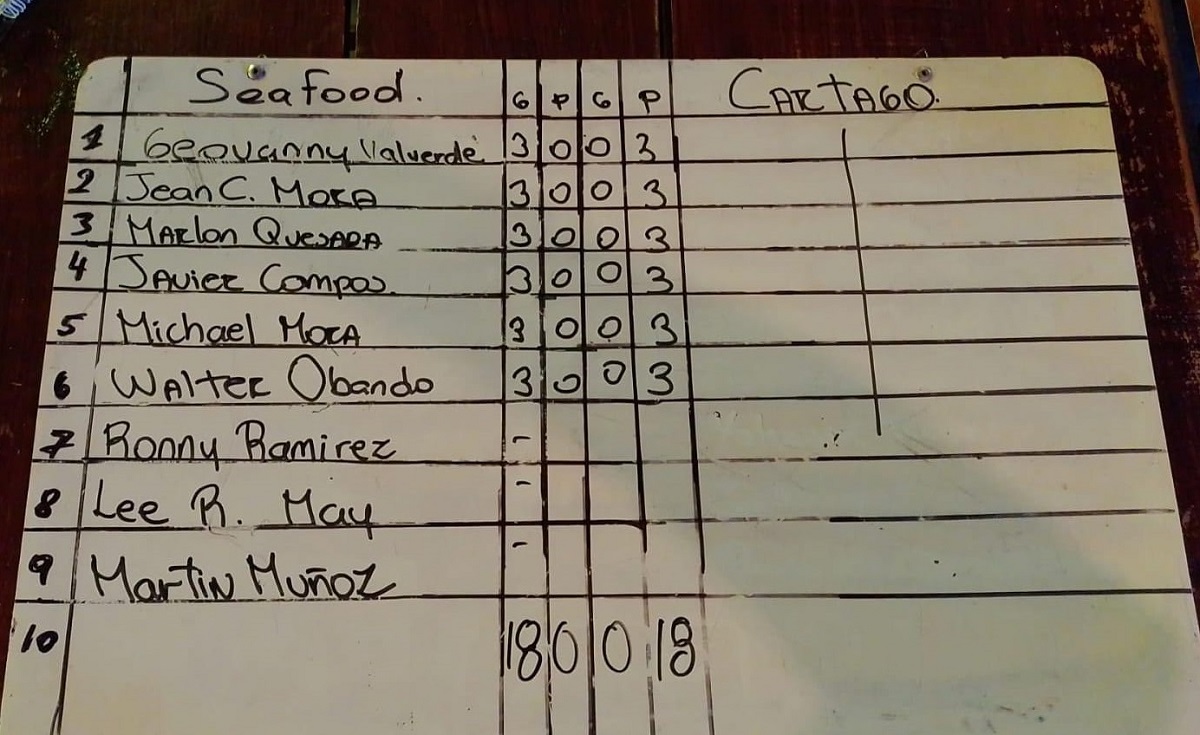 Seafood. G P G P CARTAGO.
1 Geovanny Valverde 3 0 0 3
2 Jean C. MORA 3 0 0 3
3 MARLon QUESADA 3 0 0 3
4 JAVIER Campos. 3 0 0 3
5 Michael MORA 3 0 0 3
6 WALTER Obando 3 0 0 3
7 Ronny Ramirez -
8 Lee R. May -
9 MartiN Muñoz -
10 18 0 0 18